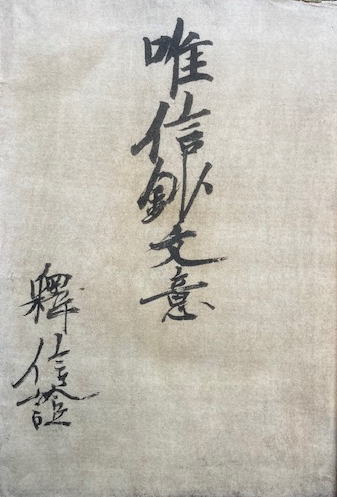 唯信鈔文意
釋信證